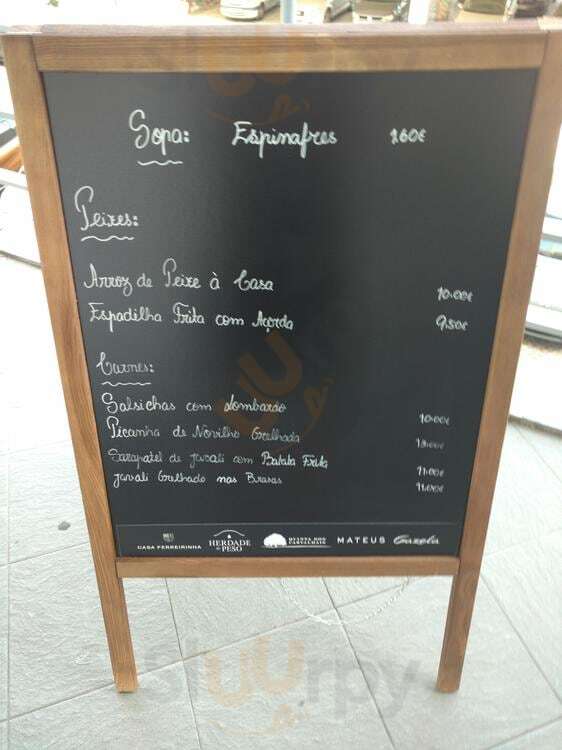 Sopa: Espinafres 1.60€
Peixes:
Arroz de Peixe à Casa 10.00€
Espadilha Frita com Açorda 9.50€
Carnes:
Salsichas com Lombardo 10.00€
Picanha de Novilho Grelhada
Sarapatel de Javali com Batata Frita 11.00€
Javali Grelhado nas Brasas 11.00€
CASA FERREIRINHA HERDADE DO PESO QUINTA DOS CARVALHAIS MATEUS Gazela
Sluurpy